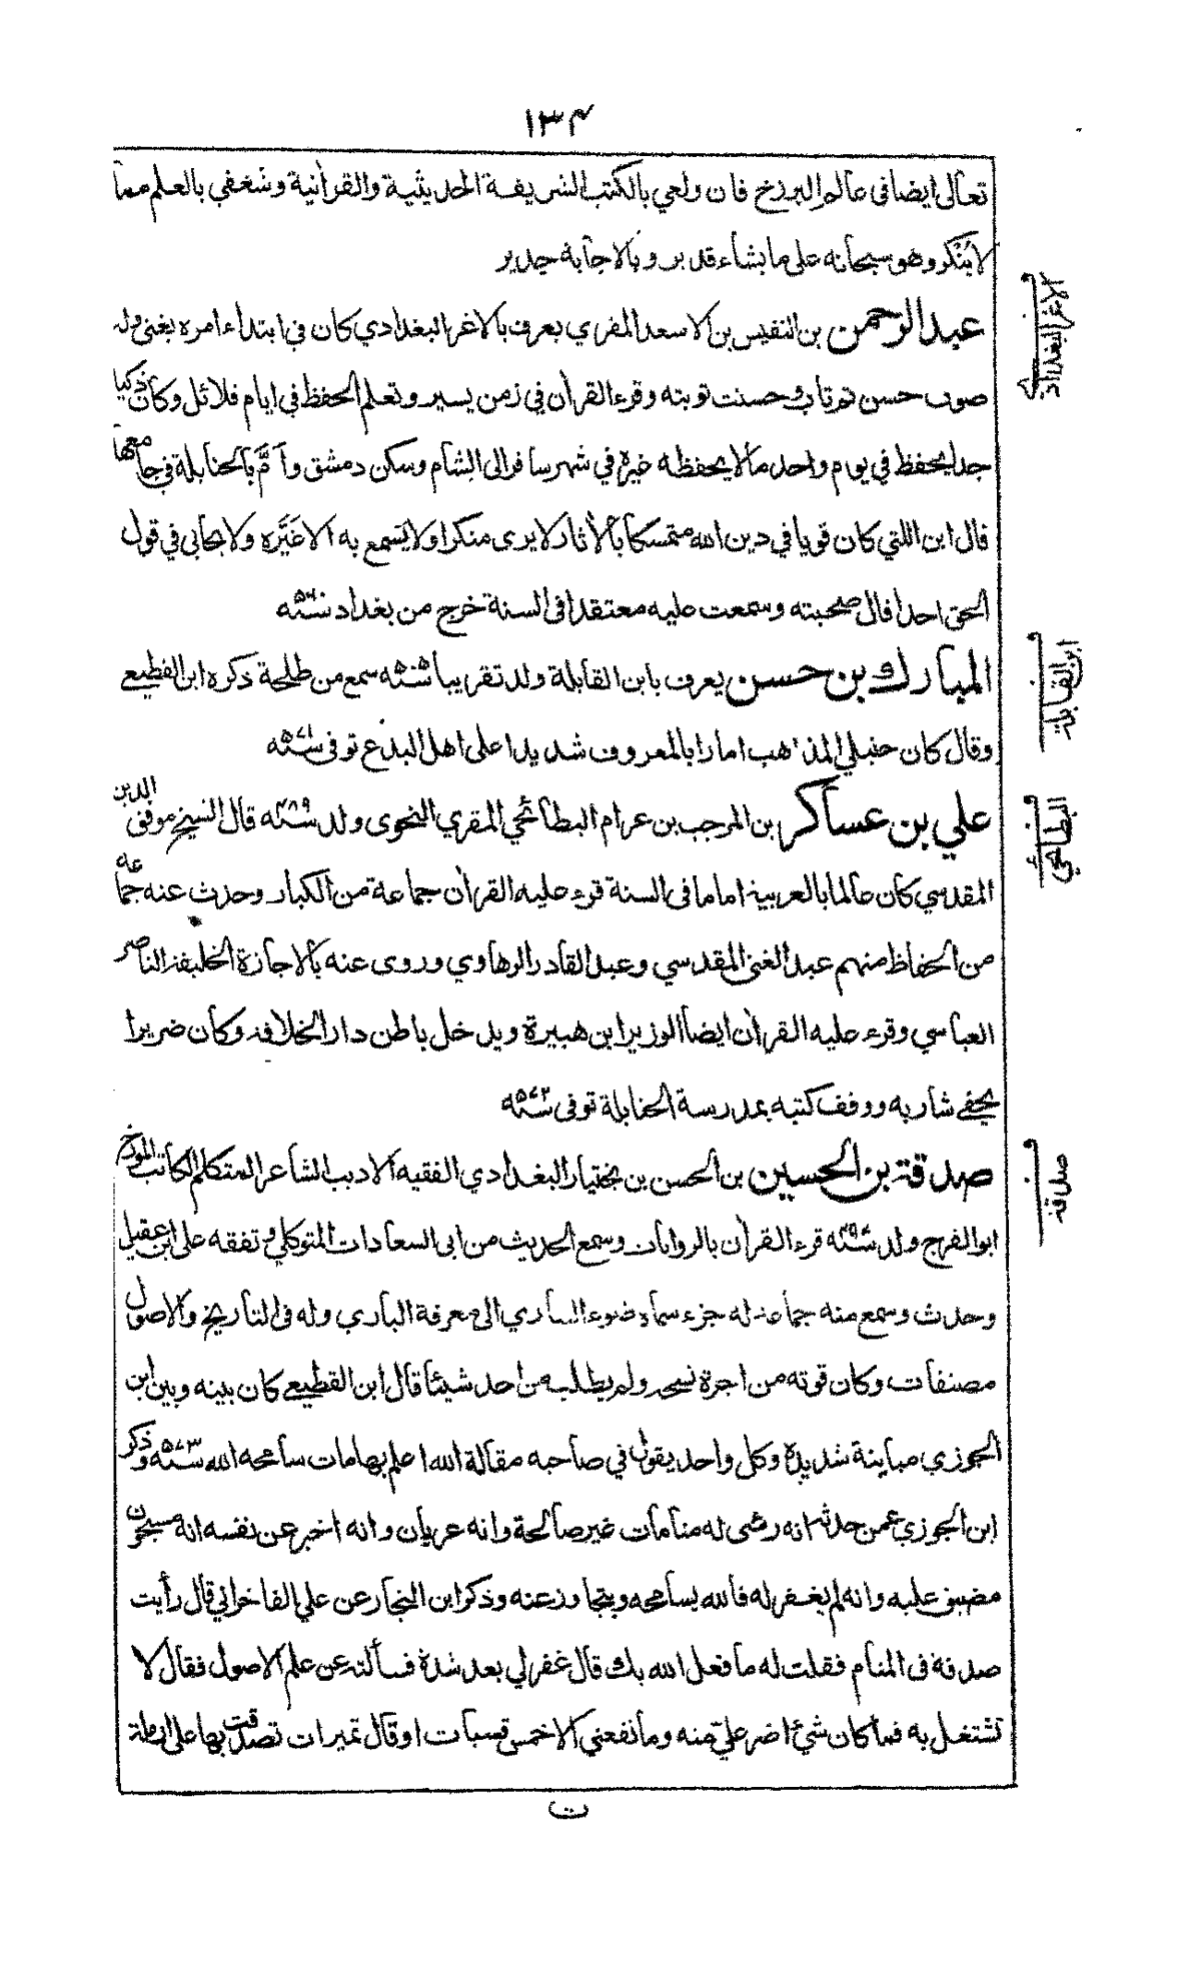 ١٣٤
تعالى ايضا في عالم البرزخ فان ولعي بالكتب الشريفة الحديثية والقرآنية وشغفي بالعلم مما
لا يُنْكَر وهو سبحانه على ما يشاء قدير وبالاجابة جدير
الاغر البغدادي
عبد الرحمن بن النفيس بن الاسعد المقري يعرف بالاغر البغدادي كان في ابتداء امره يغني وله
صوت حسن ثم تاب وحسنت توبته وقرء القران في زمن يسير وتعلم الحفظ في ايام قلائل وكان ذكيا
جدا يحفظ في يوم واحد ما لا يحفظه غيره في شهر سافر الى الشام وسكن دمشق وأمَّ بالحنابلة في جامعها
قال ابن اللتي كان قويا في دين الله متمسكا بالأثار لا يرى منكرا ولا يسمع به الا غَيَّره ولا يحابي في قول
الحق احدا قال صحبته وسمعت عليه معتقدا في السنة خرج من بغداد سنة ٥٦٠
ابن القابلة
المبارك بن حسن يعرف بابن القابلة ولد تقريبا سنة ٥٠٥ سمع من طلحة ذكره ابن القطيعي
وقال كان حنبلي المذهب امارا بالمعروف شديدا على اهل البدع توفي سنة ٥٧١
البطائحي
علي بن عساكر بن المرحب بن عرام البطائحي المقري النحوى ولد سنة ٤٨٩ قال الشيخ موفق الدين
المقدسي كان عالما بالعربية اماما في السنة قرء عليه القران جماعة من الكبار وحدث عنه جماعة
من الحفاظ منهم عبد الغني المقدسي وعبد القادر الرهاوي وروى عنه بالاجازة الخليفة الناصر
العباسي وقرء عليه القران ايضا الوزير ابن هبيرة ويدخل باطن دار الخلافة وكان ضريرا
يحفي شاربه ووقف كتبه بمدرسة الحنابلة توفي سنة ٥٧٢
صدقة
صدقة بن الحسين بن الحسن بن بختيار البغدادي الفقيه الاديب الشاعر المتكلم الكاتب المورخ
ابو الفرج ولد سنة ٤٩٧ قرء القران بالروايات وسمع الحديث من ابي السعادات المتوكلي وتفقه على ابن عقيل
وحدث وسمع منه جماعة له جزء سماه ضوء الساري الى معرفة الباري وله في التاريخ والاصول
مصنفات وكان قوته من اجرة نسخه ولم يطلب من احد شيئا قال ابن القطيعي كان بينه وبين ابن
الجوزي مباينة شديدة وكل واحد يقول في صاحبه مقالة الله اعلم بها مات سامحه الله سنة ٥٧٣ وذكر
ابن الجوزي عمن حدثه انه رئى له منامات غير صالحة وانه عريان وانه اخبر عن نفسه انه مسجون
مضيق عليه وانه لم يغفر له فالله يسامحه ويتجاوز عنه وذكر ابن النجار عن علي الفاخراني قال رأيت
صدقة في المنام فقلت له ما فعل الله بك قال غفر لي بعد شدة فسألته عن علم الاصول فقال لا
تشتغل به فما كان شيء اضر علي منه وما نفعني الا خمس قسبات او قال تميرات تصدقت بها على ارملة
ت